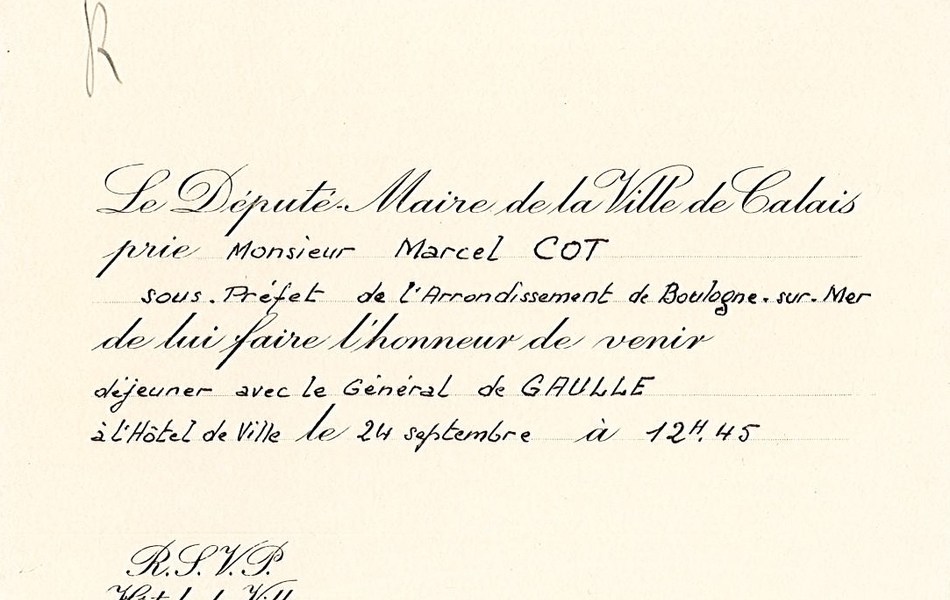 R
Le Député-Maire de la Ville de Calais
prie Monsieur Marcel COT
sous-Préfet de l'Arrondissement de Boulogne-sur-Mer
de lui faire l'honneur de venir
déjeuner avec le Général de GAULLE
à l'Hôtel de Ville le 24 septembre à 12H.45
R.S.V.P.
Hôtel de Ville